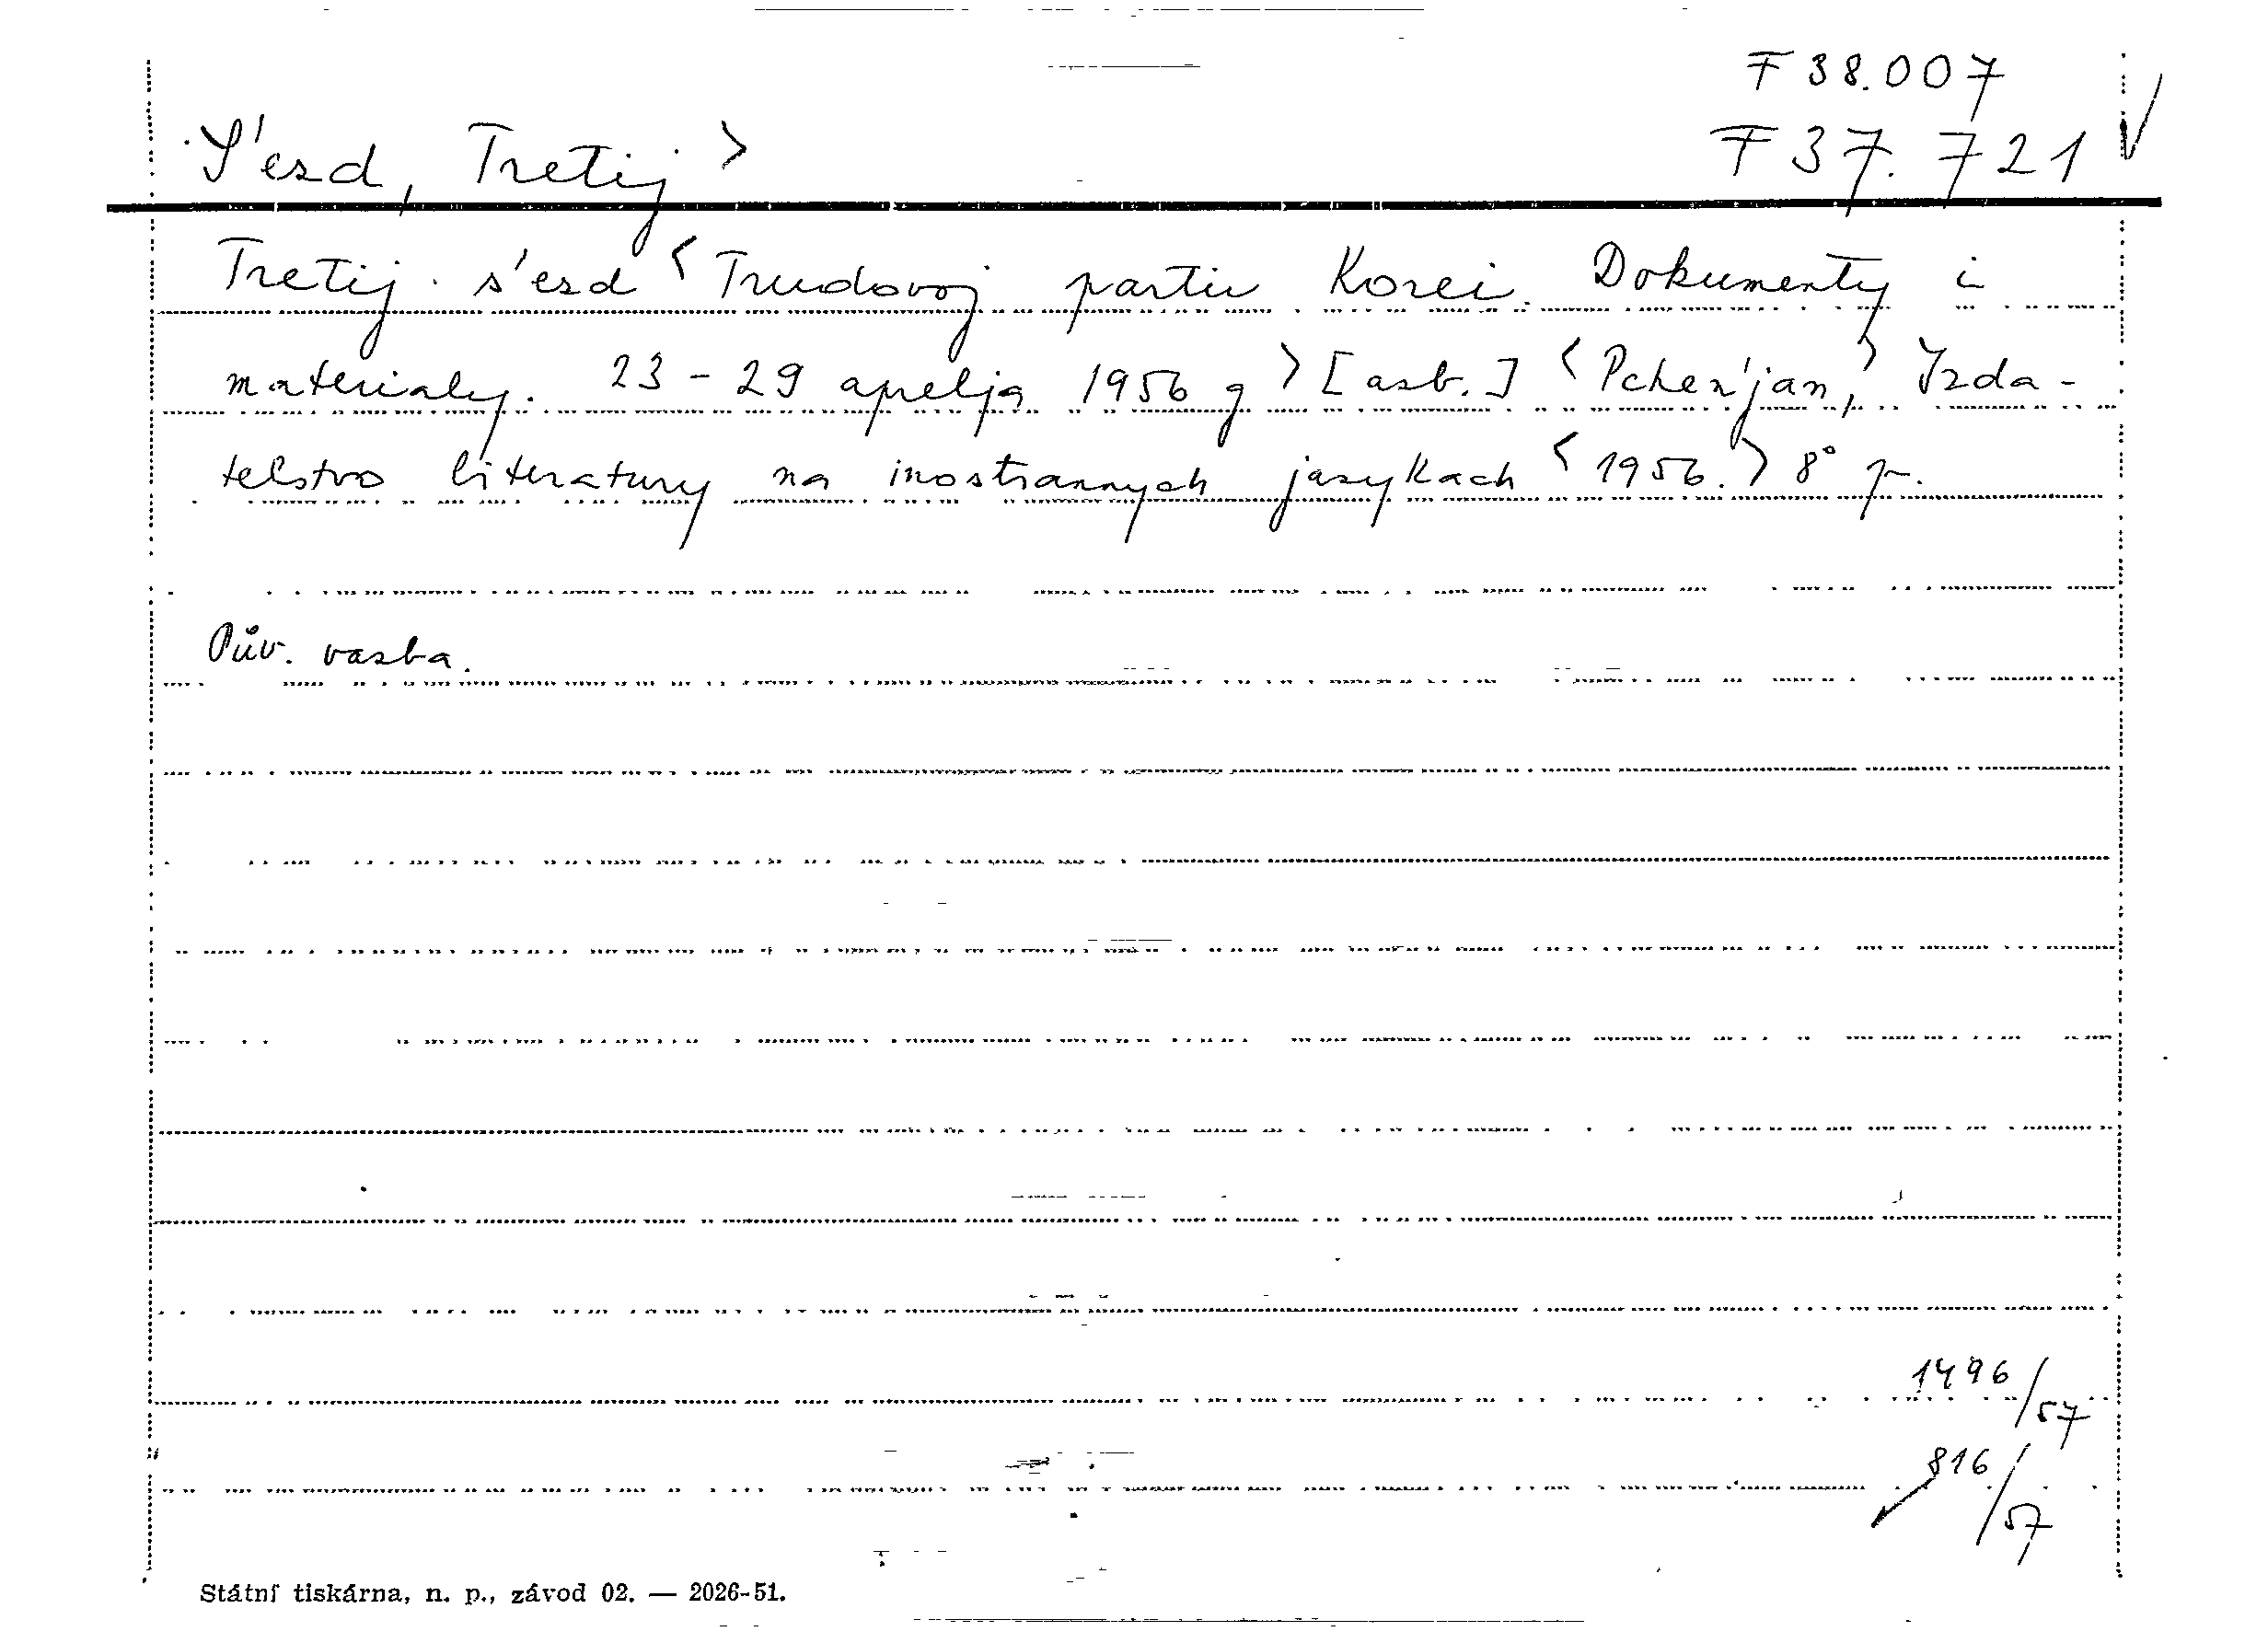 F 38.007
S'ezd, Tretij >
F 37.721
Tretij s'ezd < Trudovoj partii Korei. Dokumenty i
materialy. 23 - 29 aprelja 1956 g > [azb.] < Pchen'jan, > Izda-
telstvo literatury na inostrannych jazykach < 1956. > 8° p.
Pův. vazba.
1496/57
816/57
Státní tiskárna, n. p., závod 02. — 2026-51.